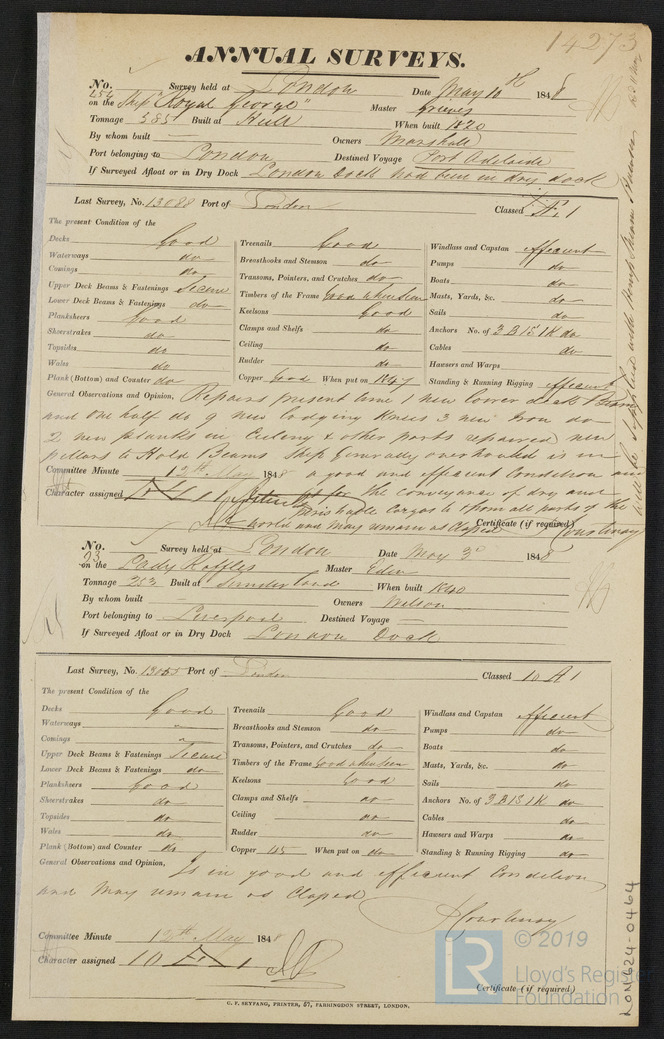 14273
ANNUAL SURVEYS.
No. 454 Survey held at London Date May 10th 1848
on the Ship "Royal George" Master Grieves
Tonnage 385 Built at Hull When built 1820
By whom built — Owners Marshall
Port belonging to London Destined Voyage Port Adelaide
If Surveyed Afloat or in Dry Dock London Dock had been in dry dock
Last Survey, No. 13088 Port of London Classed Æ 1
The present Condition of the
Decks Good
Waterways do
Comings do
Upper Deck Beams & Fastenings Secure
Lower Deck Beams & Fastenings do
Planksheers Good
Sheerstrakes do
Topsides do
Wales do
Plank (Bottom) and Counter do
Treenails Good
Breasthooks and Stemson do
Transoms, Pointers, and Crutches do
Timbers of the Frame Good when seen
Keelsons Good
Clamps and Shelfs do
Ceiling do
Rudder do
Copper Good When put on 1847
Windlass and Capstan efficient
Pumps do
Boats do
Masts, Yards, &c. do
Sails do
Anchors No. of 3 B 1 S 1 K do
Cables do
Hawsers and Warps
Standing & Running Rigging efficient
General Observations and Opinion, Repairs present time 1 new lower deck Beam
and one half do 9 new lodging knees 3 new Iron do
2 new planks in Ceiling & other parts repaired new
pillars to Hold Beams Ship generally overhauled is in
Committee Minute 12th May 1848 a good and efficient Condition and
Character assigned Æ 1 fit for the conveyance of dry and
perishable Cargos to & from all parts of the
world and may remain as Classed Certificate (if required) Courtenay
will be supplied with
No. 23 Survey held at London Date May 3d 1848
on the Lady Raffles Master Eden
Tonnage 253 Built at Sunderland When built 1840
By whom built — Owners Wilson
Port belonging to Liverpool Destined Voyage —
If Surveyed Afloat or in Dry Dock London Dock
Last Survey, No. 13055 Port of London Classed 10 A 1
The present Condition of the
Decks Good
Waterways "
Comings "
Upper Deck Beams & Fastenings Secure
Lower Deck Beams & Fastenings do
Planksheers Good
Sheerstrakes do
Topsides do
Wales do
Plank (Bottom) and Counter do
Treenails Good
Breasthooks and Stemson do
Transoms, Pointers, and Crutches do
Timbers of the Frame Good when seen
Keelsons Good
Clamps and Shelfs do
Ceiling do
Rudder do
Copper 45 When put on do
Windlass and Capstan efficient
Pumps do
Boats do
Masts, Yards, &c. do
Sails do
Anchors No. of 3 B 1 S 1 K do
Cables do
Hawsers and Warps do
Standing & Running Rigging do
General Observations and Opinion, Is in good and efficient Condition
and May remain as Classed
Courtenay
Committee Minute 12th May 1848
Character assigned 10 A 1
Certificate (if required)
C. F. SEYFANG, PRINTER, 57, FARRINGDON STREET, LONDON.
LON624-0464
LR © 2019
Lloyd's Register
Foundation